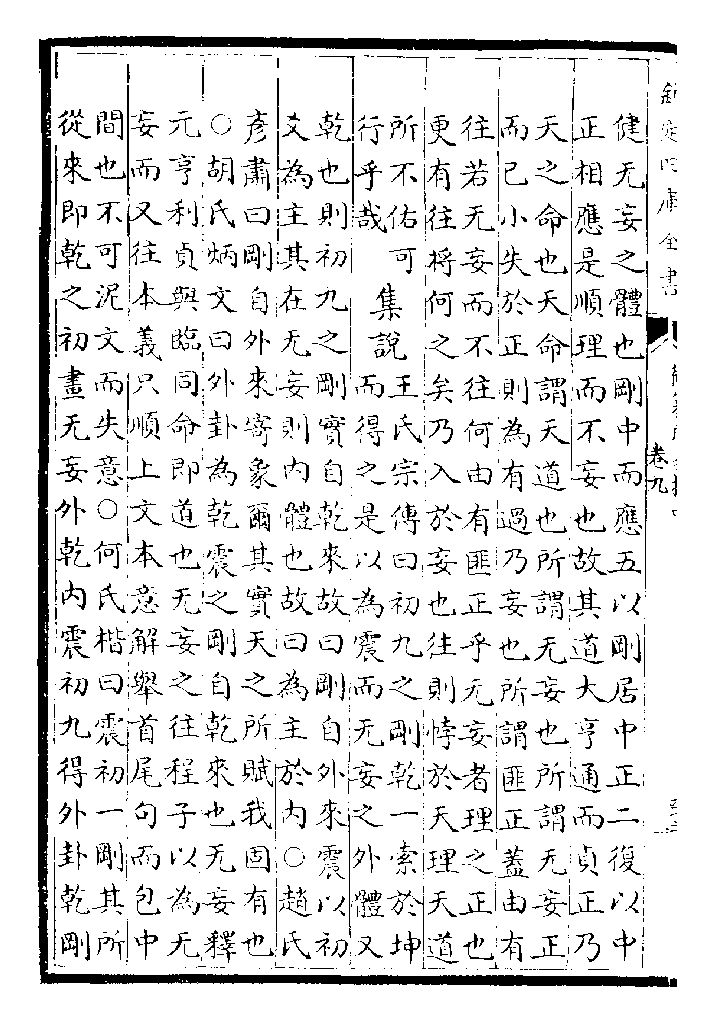 欽定四庫全書
卷九
健无妄之體也剛中而應五以剛居中正二復以中
正相應是順理而不妄也故其道大亨通而貞正乃
天之命也天命謂天道也所謂无妄也所謂无妄正
而已小失於正則為有過乃妄也所謂匪正蓋由有
往若无妄而不往何由有匪正乎无妄者理之正也
更有往將何之矣乃入於妄也往則悖於天理天道
所不佑可
行乎哉
集說
王氏宗傳曰初九之剛乾一索於坤
而得之是以為震而无妄之外體又
乾也則初九之剛實自乾來故曰剛自外來震以初
爻為主其在无妄則内體也故曰為主於内○趙氏
彥肅曰剛自外來寄象爾其實天之所賦我固有也
○胡氏炳文曰外卦為乾震之剛自乾來也无妄釋
元亨利貞與臨同命即道也无妄之往程子以為无
妄而又往本義只順上文本意解舉首尾句而包中
間也不可泥文而失意○何氏楷曰震初一剛其所
從來即乾之初畫无妄外乾内震初九得外卦乾剛